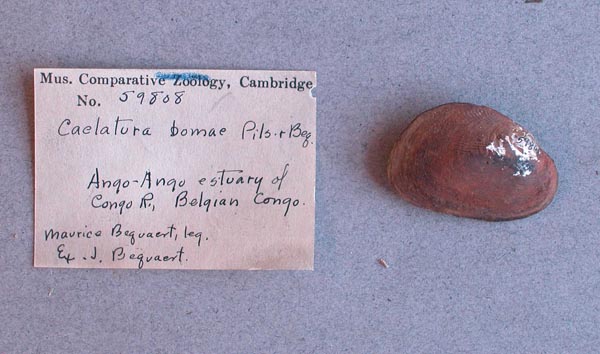 Mus. Comparative Zoology, Cambridge
No. 59808
Caelatura bomae Pils. & Beq.
Ango-Ango estuary of
Congo R., Belgian Congo.
Maurice Bequaert, leg.
Ex. J. Bequaert.